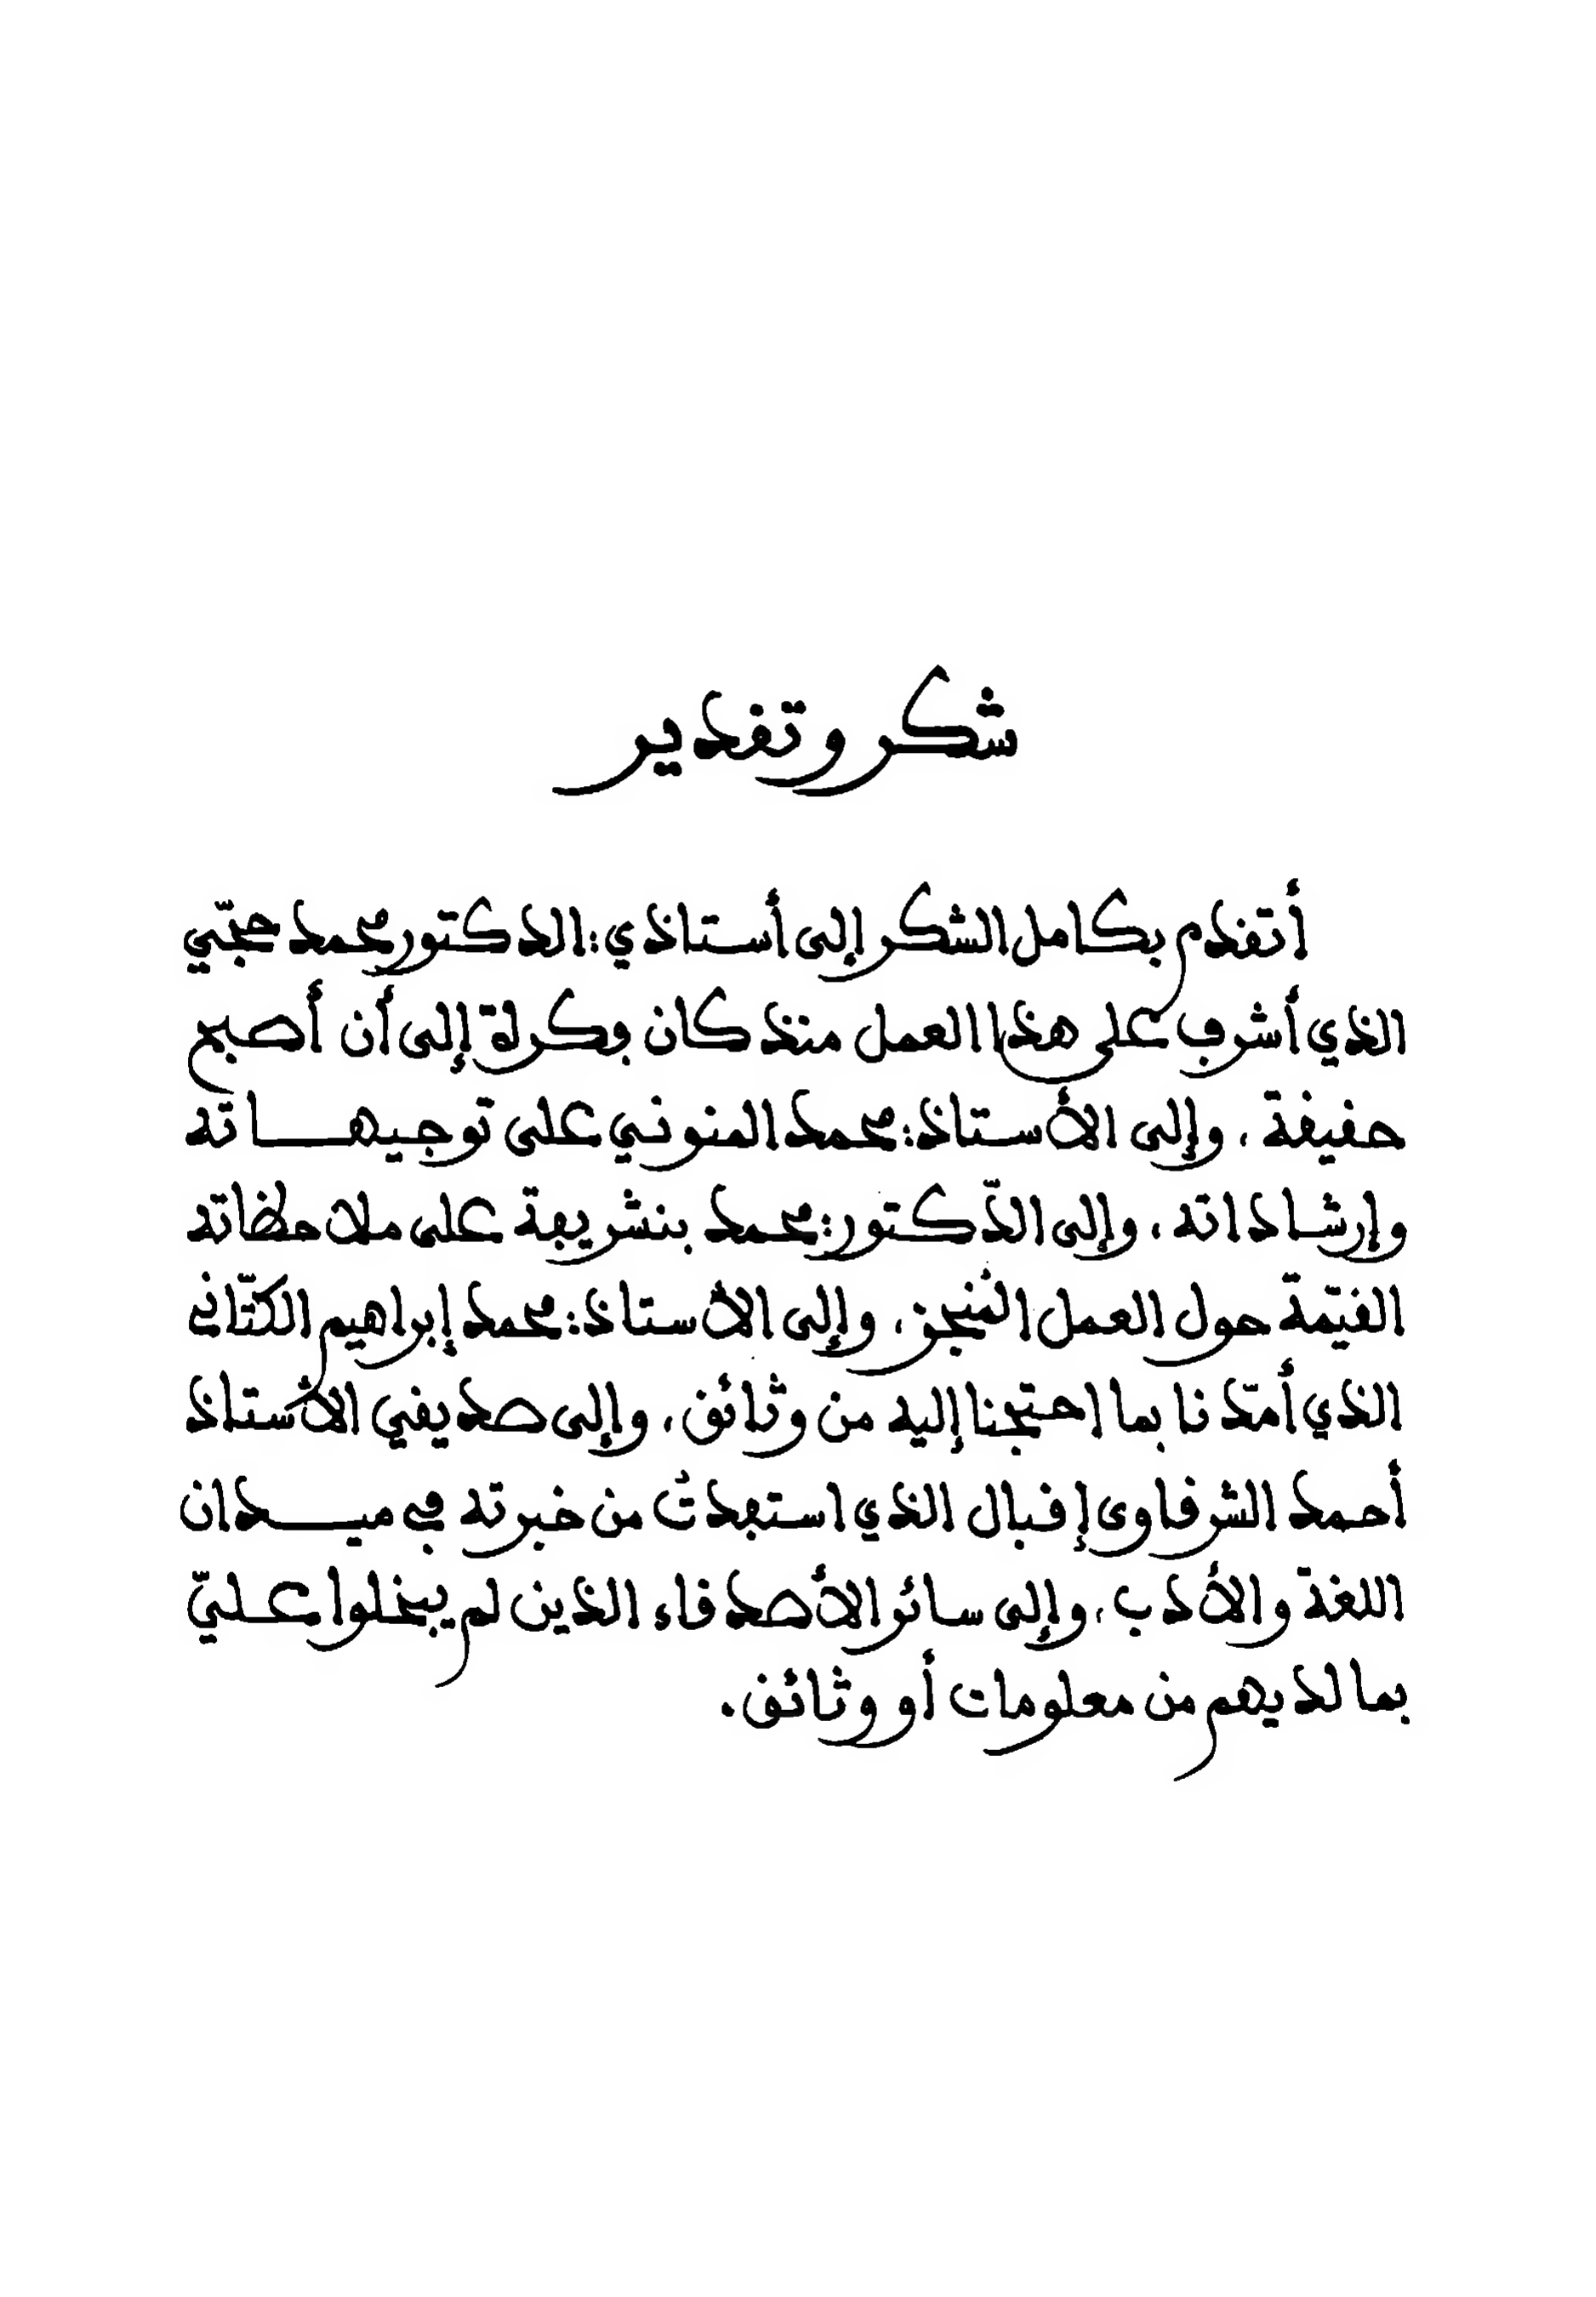 شكر وتقدير
أتقدم بكامل الشكر إلى أستاذي: الدكتور محمد حجّي
الذي أشرف على هذا العمل منذ كان فكرة إلى أن أصبح
حقيقة، وإلى الأستاذ: محمد المنوني على توجيهاته
وإرشاداته، وإلى الدّكتور: محمد بنشريفة على ملاحظاته
القيّمة حول العمل المُنجز، وإلى الأستاذ: محمد إبراهيم الكتّاني
الذي أمدّنا بما احتجنا إليه من وثائق، وإلى صديقي الأستاذ
أحمد الشرقاوى إقبال الذي استفدتُ من خبرته في ميدان
اللغة والأدب، وإلى سائر الأصدقاء الذين لم يبخلوا عليّ
بما لديهم من معلومات أو وثائق.